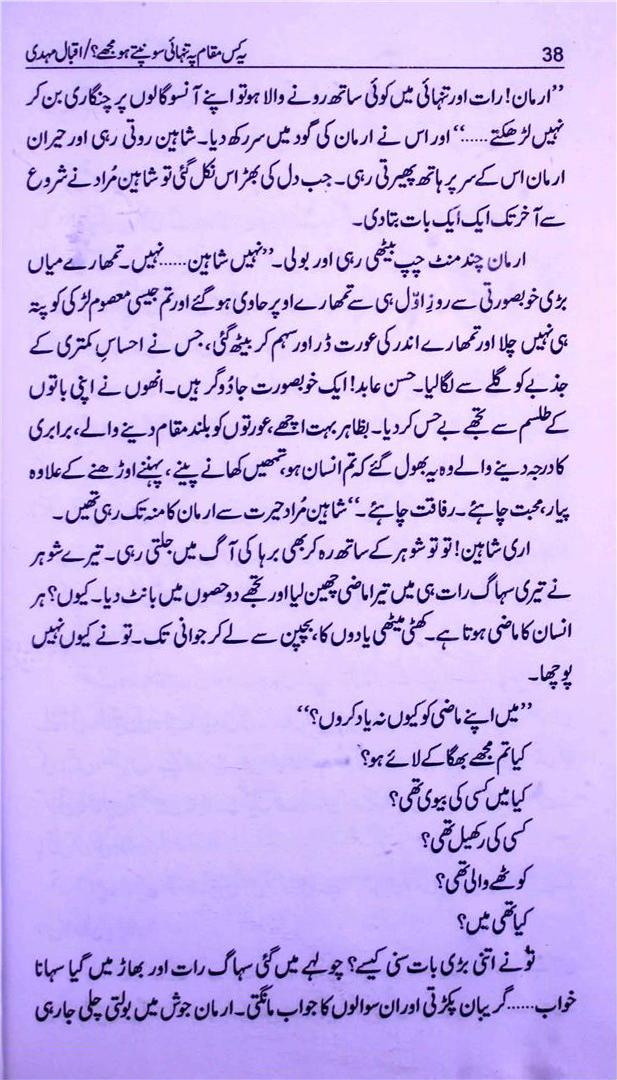 38 یہ کس مقام پہ تنہائی سونپتے ہو مجھے؟/اقبال مہدی
”ارمان! رات اور تنہائی میں کوئی ساتھ رونے والا ہو تو اپنے آنسو گالوں پر چنگاری بن کر
نہیں لڑھکتے......“ اور اس نے ارمان کی گود میں سر رکھ دیا۔ شاہین روتی رہی اور حیران
ارمان اس کے سر پر ہاتھ پھیرتی رہی۔ جب دل کی بھڑاس نکل گئی تو شاہین مُراد نے شروع
سے آخر تک ایک ایک بات بتادی۔
ارمان چند منٹ چپ بیٹھی رہی اور بولی۔ ”نہیں شاہین......نہیں۔ تمھارے میاں
بڑی خوبصورتی سے روزِ اوّل ہی سے تمھارے اوپر حاوی ہو گئے اور تم جیسی معصوم لڑکی کو پتہ
ہی نہیں چلا اور تمھارے اندر کی عورت ڈر اور سہم کر بیٹھ گئی، جس نے احساسِ کمتری کے
جذبے کو گلے سے لگالیا۔ حسن عابد! ایک خوبصورت جادُوگر ہیں۔ انھوں نے اپنی باتوں
کے طلسم سے تجھے بے حس کر دیا۔ بظاہر بہت اچھے، عورتوں کو بلند مقام دینے والے، برابری
کا درجہ دینے والے وہ یہ بھول گئے کہ تم انسان ہو، تمھیں کھانے پینے، پہننے اوڑھنے کے علاوہ
پیار، محبت چاہئے۔ رفاقت چاہئے۔“ شاہین مُراد حیرت سے ارمان کا منہ تک رہی تھیں۔
اری شاہین! تو تو شوہر کے ساتھ رہ کر بھی برہا کی آگ میں جلتی رہی۔ تیرے شوہر
نے تیری سہاگ رات ہی میں تیرا ماضی چھین لیا اور تجھے دو حصوں میں بانٹ دیا۔ کیوں؟ ہر
انسان کا ماضی ہوتا ہے۔ کھٹی میٹھی یادوں کا، بچپن سے لے کر جوانی تک۔ تو نے کیوں نہیں
پوچھا۔
”میں اپنے ماضی کو کیوں نہ یاد کروں؟“
کیا تم مجھے بھگا کے لائے ہو؟
کیا میں کسی کی بیوی تھی؟
کسی کی رکھیل تھی؟
کوٹھے والی تھی؟
کیا تھی میں؟
تُو نے اتنی بڑی بات سنی کیسے؟ چولہے میں گئی سہاگ رات اور بھاڑ میں گیا سہانا
خواب......گریبان پکڑتی اور ان سوالوں کا جواب مانگتی۔ ارمان جوش میں بولتی چلی جارہی